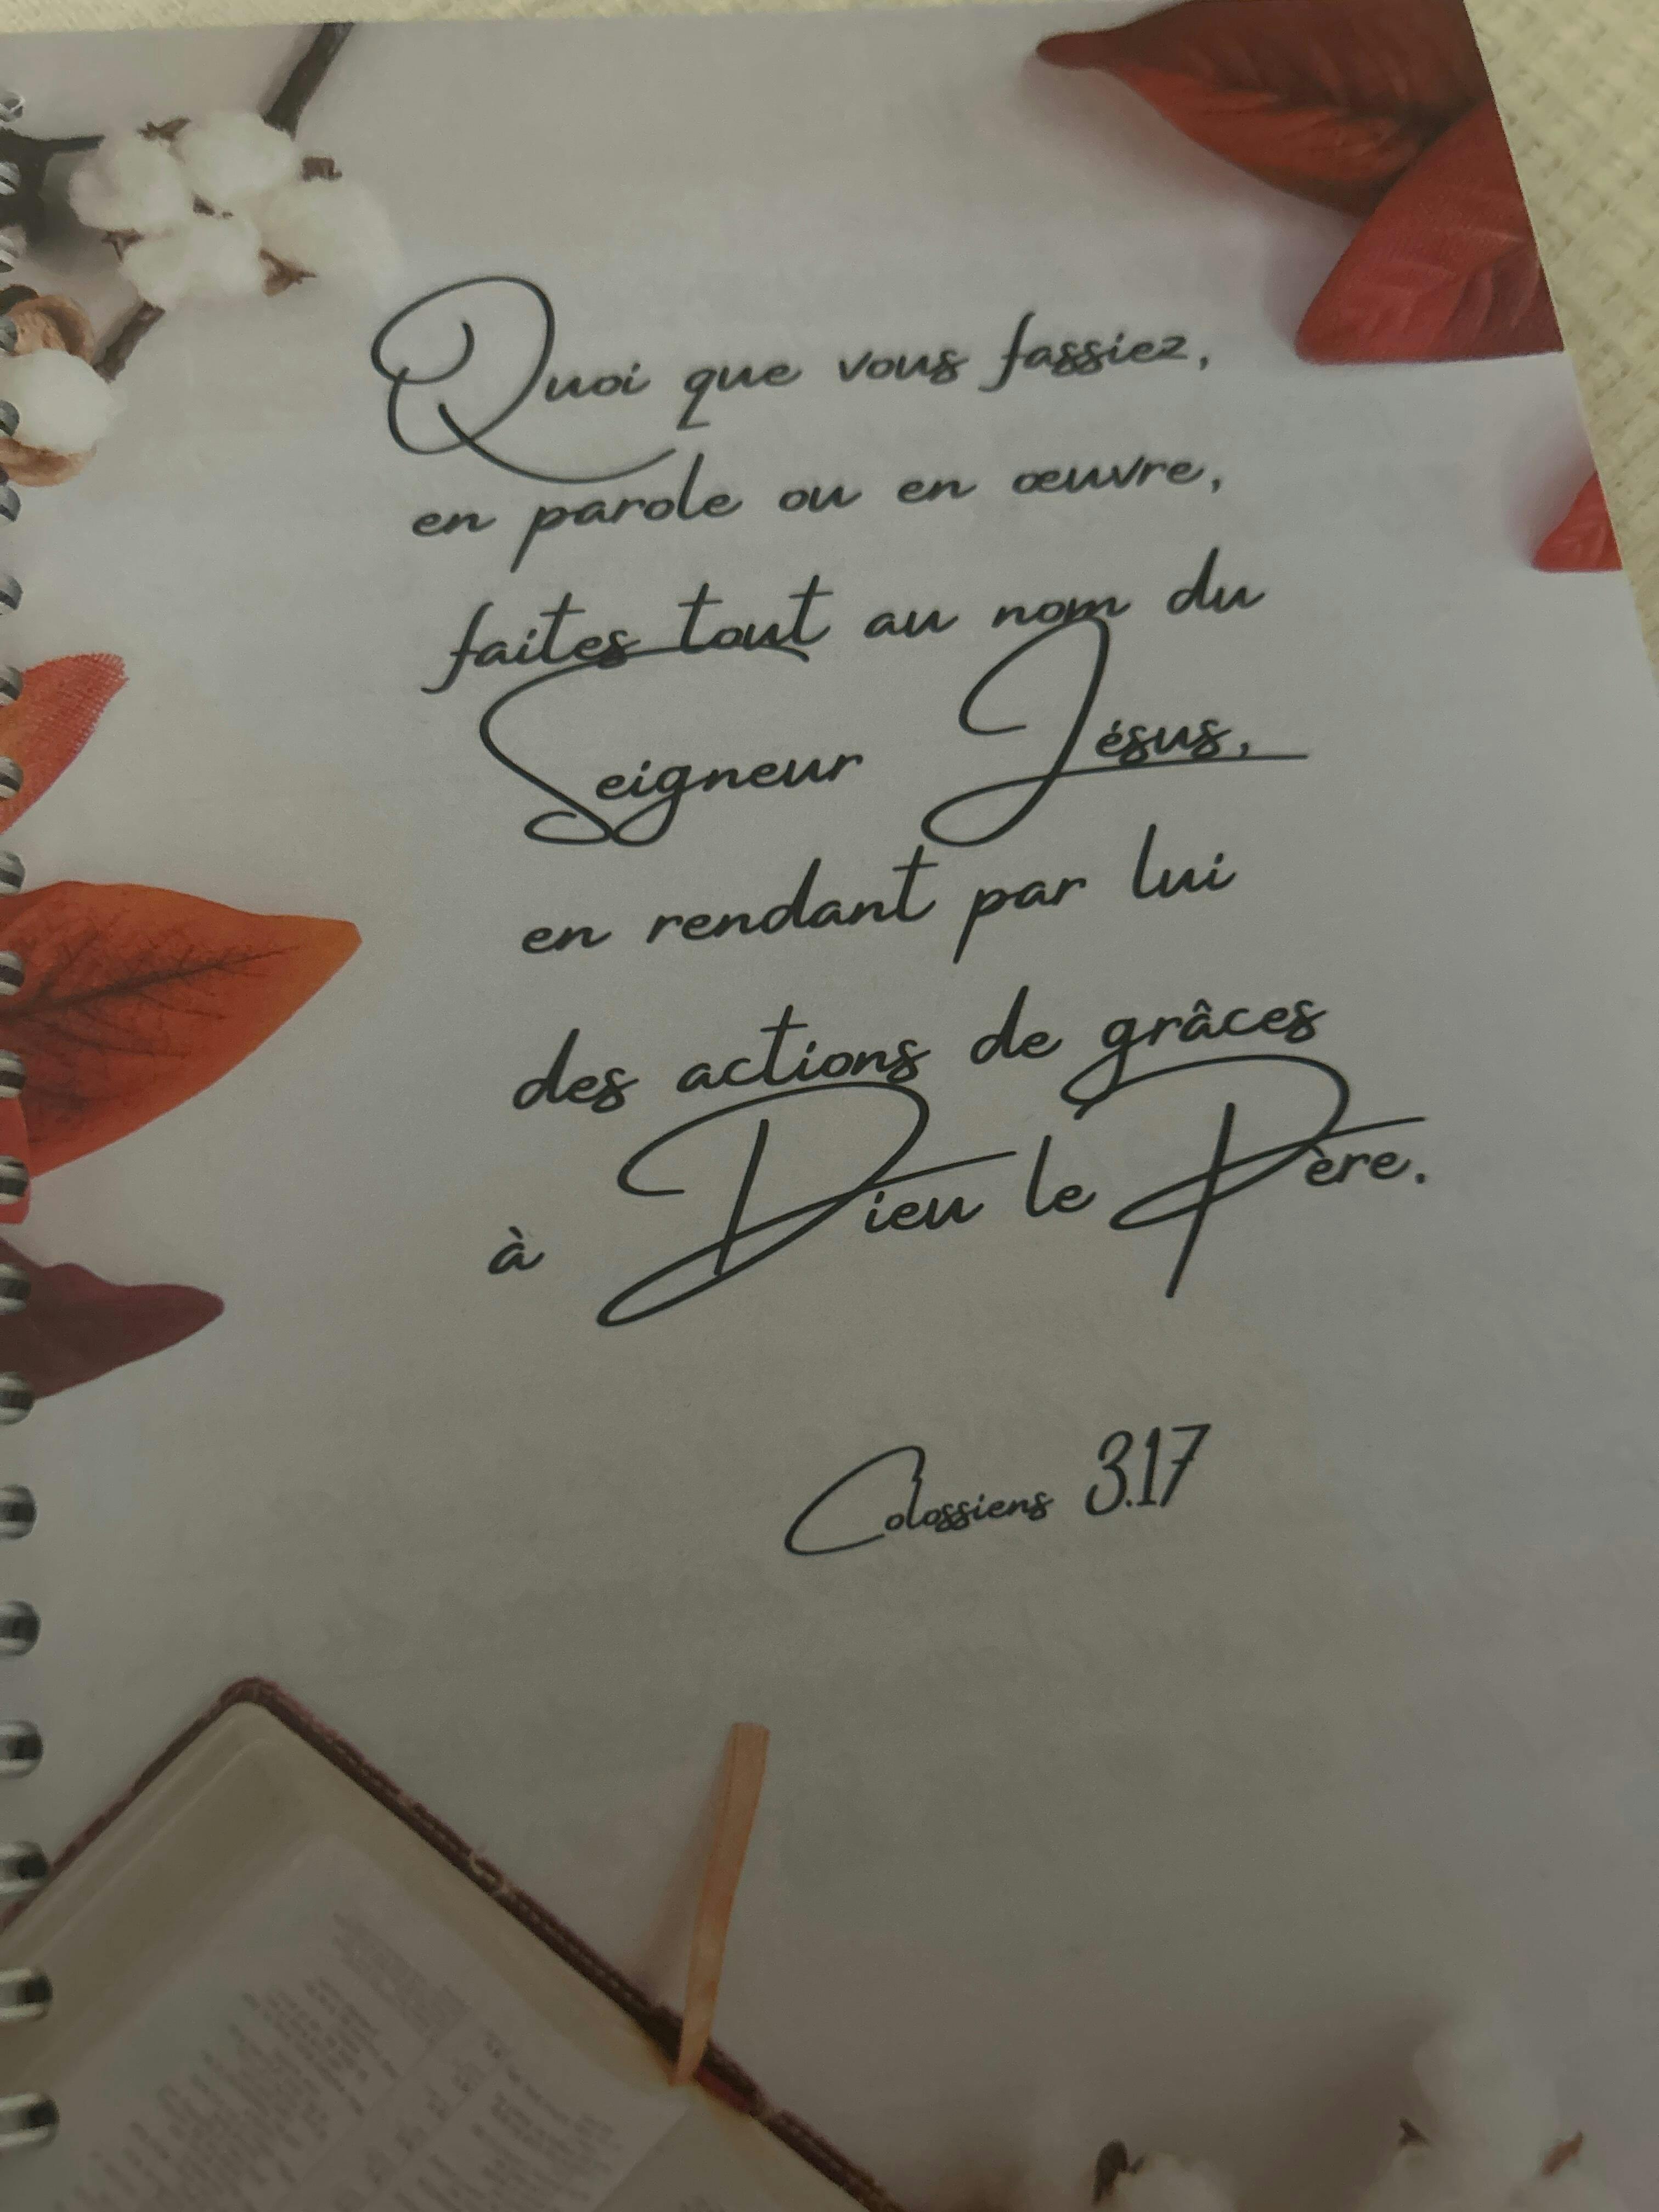 Quoi que vous fassiez,
en parole ou en œuvre,
faites tout au nom du
Seigneur Jésus,
en rendant par lui
des actions de grâces
à Dieu le Père.
Colossiens 3.17